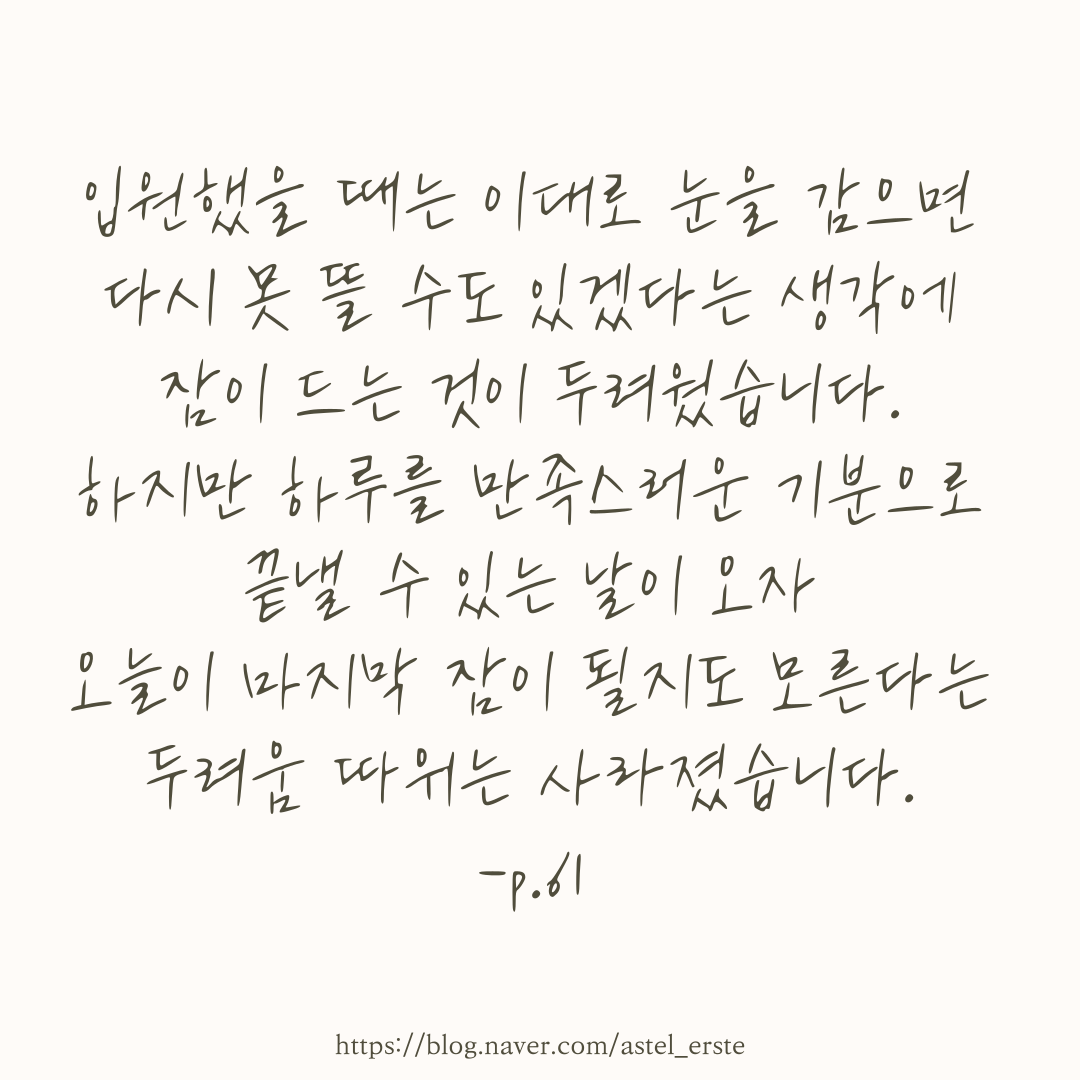 입원했을 때는 이대로 눈을 감으면
다시 못 뜰 수도 있겠다는 생각에
잠이 드는 것이 두려웠습니다.
하지만 하루를 만족스러운 기분으로
끝낼 수 있는 날이 오자
오늘이 마지막 잠이 될지도 모른다는
두려움 따위는 사라졌습니다.
-p.61
https://blog.naver.com/astel_erste